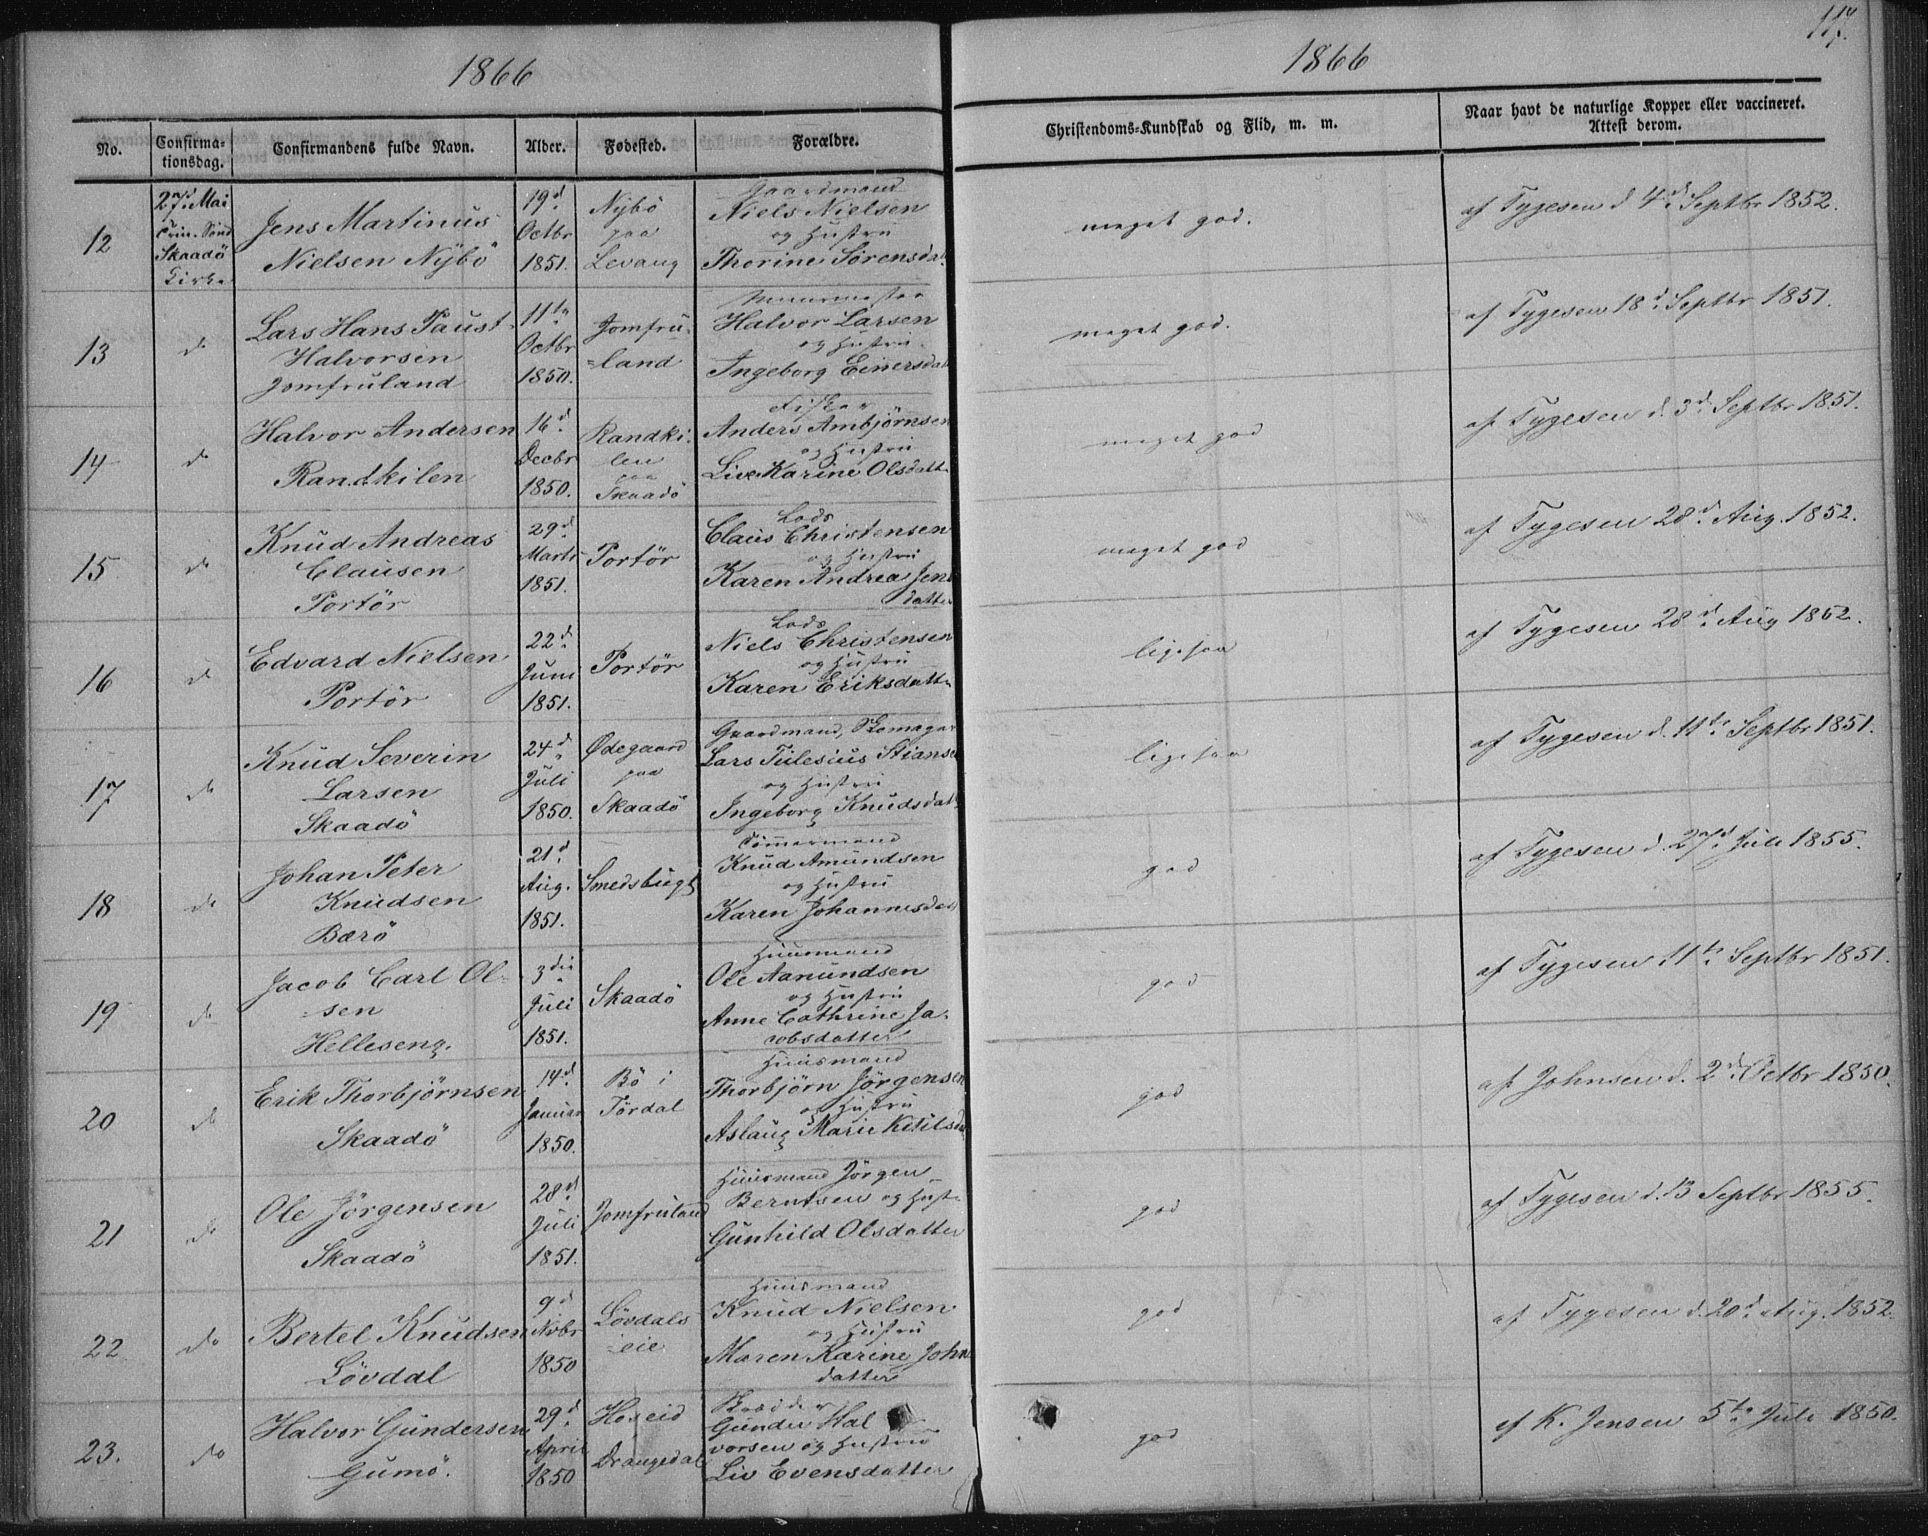 117.
1866
1866
No.
Confirmationsdag.
Confirmandens fulde Navn.
Alder.
Fødested.
Forældre.
Christendoms-Kundskab og Flid, m. m.
Naar havt de naturlige Kopper eller vaccineret. Attest derom.
12
27d. Mai
Trin. Sönd
Skaadö
Kirke
Jens Martinus
Nielsen Nÿbö
19d.
Octbr
1851.
Nÿbö
paa
Levang
Gaardmand
Niels Nielsen
og Hustru
Thorine Sörensdat
meget god.
af Tygesen d 4d. Septbr 1852.
13
do
Lars Hans Faust
Halvorsen
Jomfruland
11te
Octbr
1850.
Jomfru
=land
Halvor Larsen
og Hustru
Ingeborg Einersdat
meget god.
af Tygesen 18d. Septbr 1851.
14
do
Halvor Andersen
Randkilen
16d.
Decbr
1850.
Randki
len
paa
Skaadö
Fisker
Anders Ambjørnsen
og Hustru
Live Karine Olsdatt
meget god
af Tygesen d. 3d. Septbr 1851.
15
do
Knud Andreas
Clausen
Portör
29d.
Marts
1851.
Portör
Lods
Claus Christensen
og Hustru
Karen Andrea Jens
datter
meget god
af Tygesen 28d. Aug. 1852.
16
do
Edvard Nielsen
Portör
22d.
Juni
1851.
Portör
Lods
Niels Christensen
og Hustru
Karen Eriksdatte
ligesaa
af Tygesen 28d. Aug 1852.
17
do
Knud Severin
Larsen
Skaadö
24d.
Juli
1850.
Ødegaard
paa
Skaadö
Gaardmand, Skomager
Lars Tulesius Stianse
og Hustru
Ingeborg Knudsdat
ligesaa
af Tygesen d. 11te Septbr 1851.
18
do
Johan Peter
Knudsen
Bærö
21d.
Aug.
1851.
Smedsbugt
Tömmermand
Knud Amundsen
og Hustru
Karen Johannesdat
god
af Tygesen d. 27d. Juli 1855.
19
do
Jacob Carl Ol-
sen
Helleseng.
3die
Juli
1851.
Skaadö
Huusmand
Ole Aamundsen
og Hustru
Anne Cathrine Ja-
cobsdatter
god
af Tygesen 11te Septbr 1851.
20
do
Erik Thorbjörnsen
Skaadö
14d.
Januar
1850.
Bö i
Tördal
Huusmand
Thorbjörn Jörgensen
og Hustru
Aslaug Marie Ketilsda
god
af Johnsen d. 2d. Octbr 1850.
21
do
Ole Jörgensen
Skaadö
28d.
Juli
1851.
Jomfruland
Huusmand Jörgen
Berntsen og Hust
Gunhild Olsdatter
god
af Tygesen d. 13 Septbr 1855.
22
do
Bertel Knudsen
Lövdal
9d
Novbr
1850
Lövdals
eie
Huusmand
Knud Nielsen
og Hustru
Maren Karine John
datter
god
af Tygesen d. 20d. Aug. 1852.
23.
do
Halvor Gundersen
Gumö.
29d.
April
1850
Hoseid
Drangedal
Gunder Hal
vorsen og Hustru
Liv Evensdatter
god
af K. Jensen 5te Juli 1850.